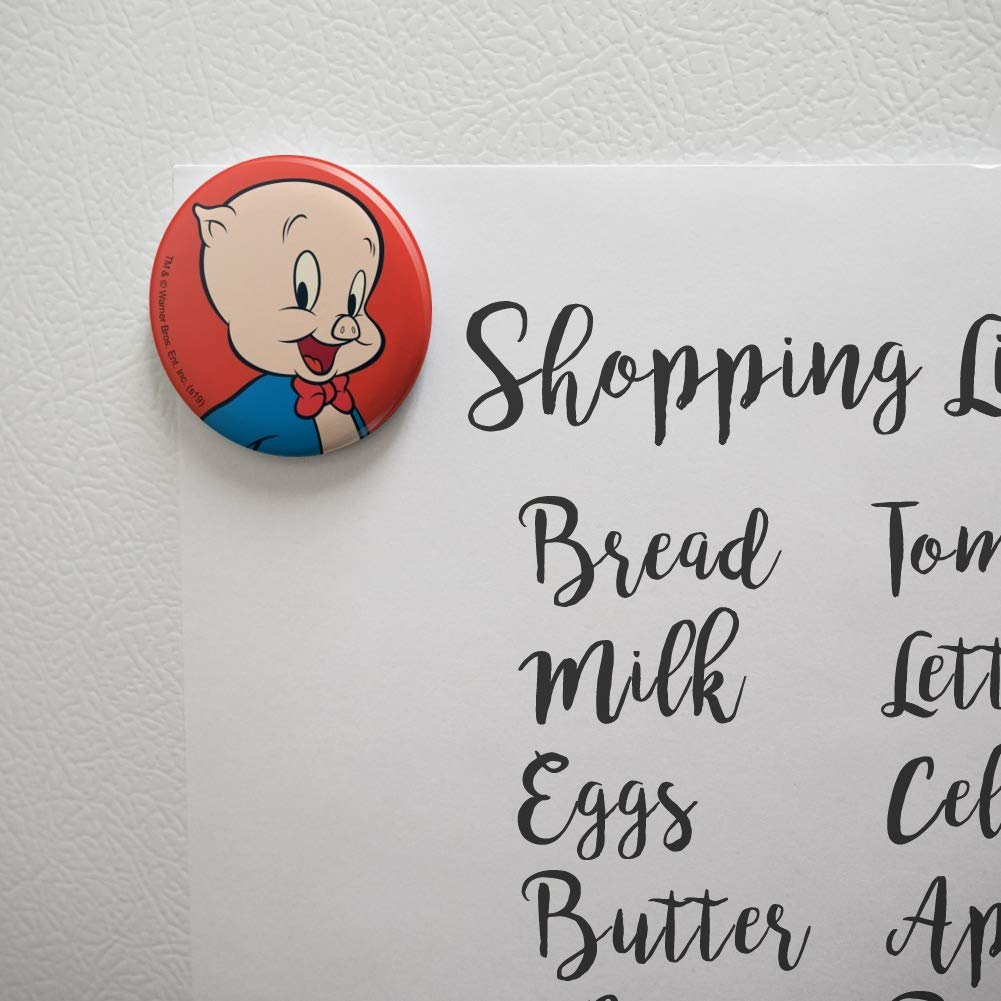 TM & © Warner Bros. Ent. Inc. (s19)
Shopping Li
Bread Tom
Milk Lett
Eggs Cel
Butter Ap